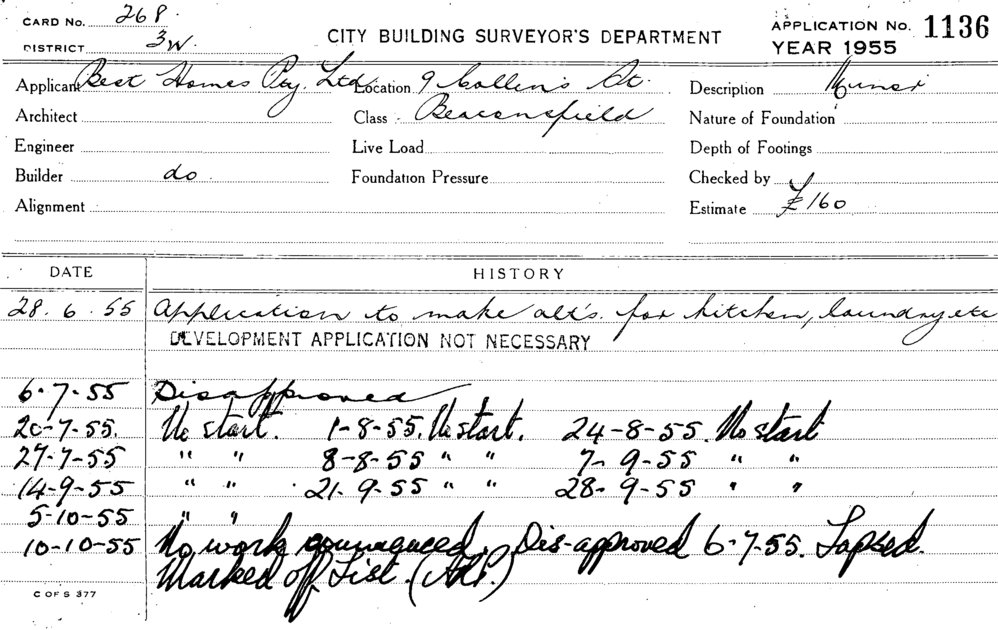 CARD NO. 268.
DISTRICT 3W.
CITY BUILDING SURVEYOR'S DEPARTMENT
APPLICATION NO. 1136
YEAR 1955
Applicant Best Homes Pty. Ltd. Location 9 Collins St. Description Minor
Architect Class Beaconsfield Nature of Foundation
Engineer Live Load Depth of Footings
Builder do. Foundation Pressure Checked by
Alignment Estimate £160
DATE HISTORY
28.6.55 Application to make alt's. for kitchen, laundry etc
DEVELOPMENT APPLICATION NOT NECESSARY
6-7-55 Disapproved
20-7-55. No start. 1-8-55. No start. 24-8-55. No start
27-7-55 " " 8-8-55 " " 7-9-55 " "
14-9-55 " " 21-9-55 " " 28-9-55 " "
5-10-55 " "
10-10-55 No work commenced. Dis-approved 6-7-55. Lapsed.
Marked off List.
C OF S 377